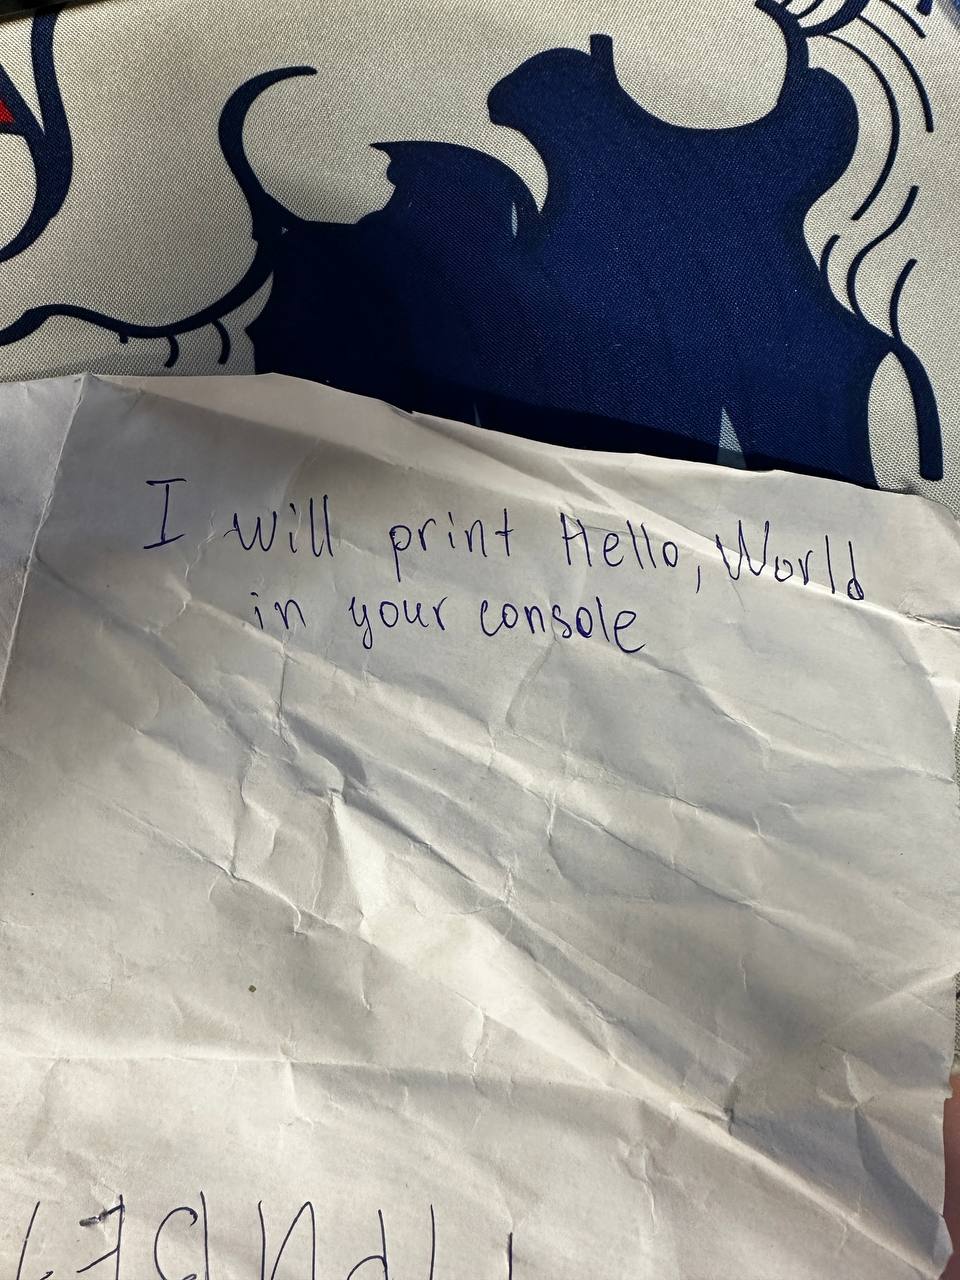 I will print Hello, World
in your console